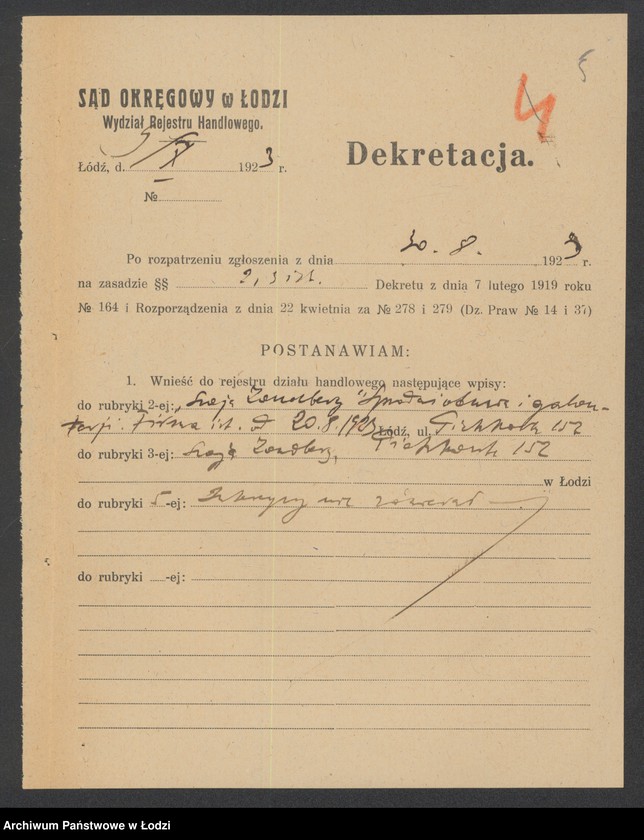 5
4
SĄD OKRĘGOWY w ŁODZI
Wydział Rejestru Handlowego.
Dekretacja.
Łódź, d. 5/IX 1923 r.
№
Po rozpatrzeniu zgłoszenia z dnia 30. 8. 1923 r.
na zasadzie §§ 2, 3 i Dekretu z dnia 7 lutego 1919 roku
№ 164 i Rozporządzenia z dnia 22 kwietnia za № 278 i 279 (Dz. Praw № 14 i 37)
POSTANAWIAM:
1. Wnieść do rejestru działu handlowego następujące wpisy:
do rubryki 2-ej: „Szaja Zandberg" Sprzedaż obuwia i galan-
terji. Firma ist. od 20.8.1923 Łódź, ul. Piotrkowska 152
do rubryki 3-ej: Szaja Zandberg, Piotrkowska 152
w Łodzi
do rubryki 5-ej: Intercyzy nie zawierał
do rubryki -ej:
Archiwum Państwowe w Łodzi